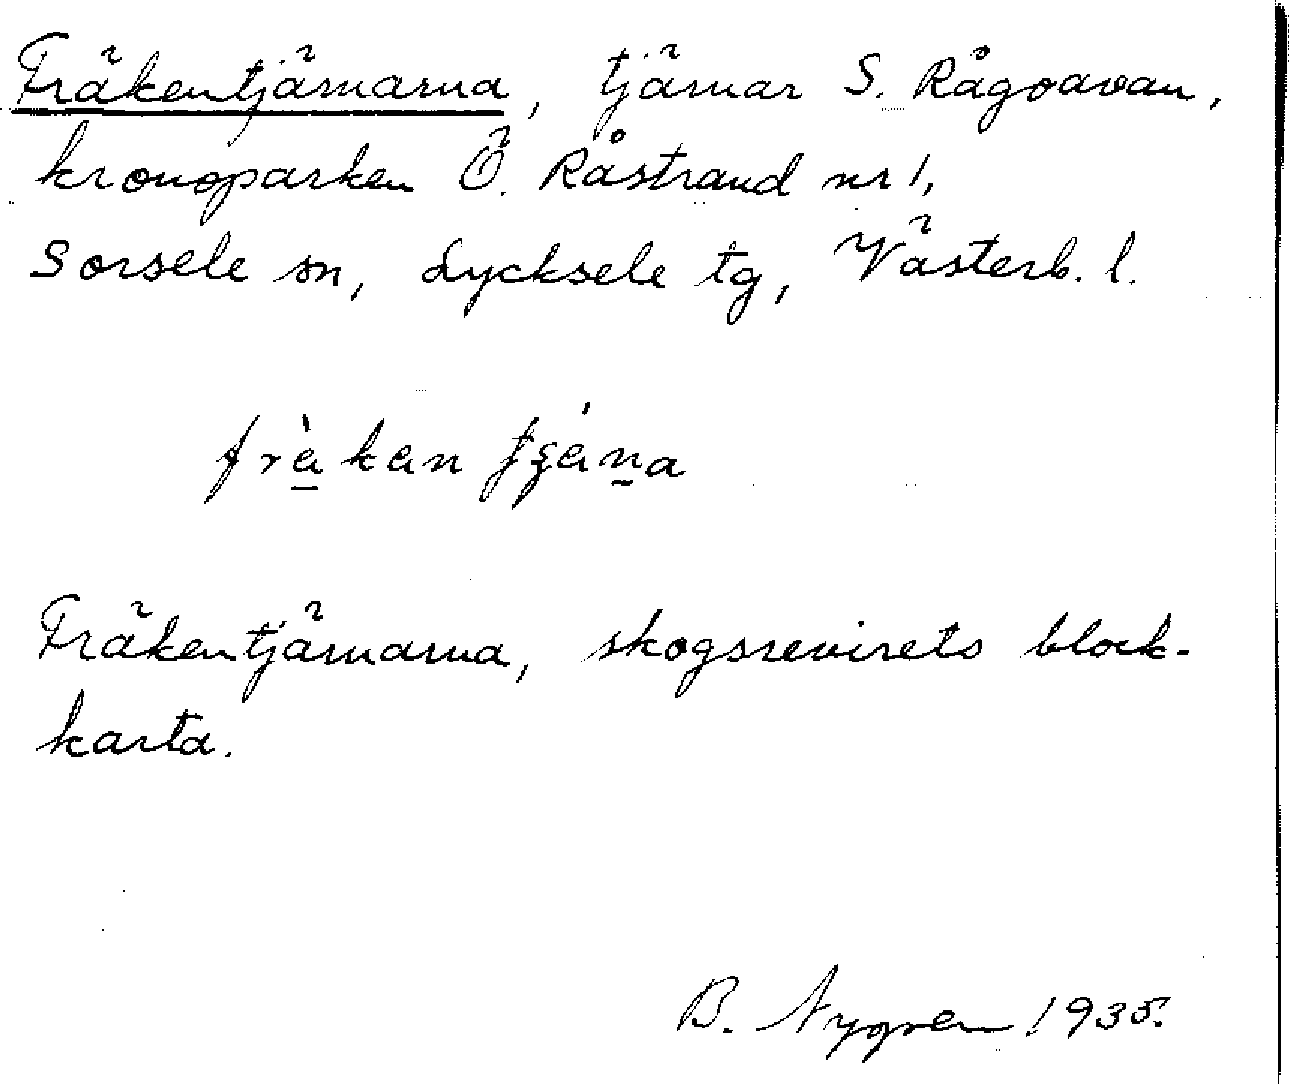 Fräkentjärnarna, tjärnar S. Rågoavan,
kronoparken Ö. Råstrand nr 1,
Sorsele sn, Lycksele tg, Västerb. l.
Fräkentjärnarna, skogsrevirets block-
karta.
B. Nygren 1935.